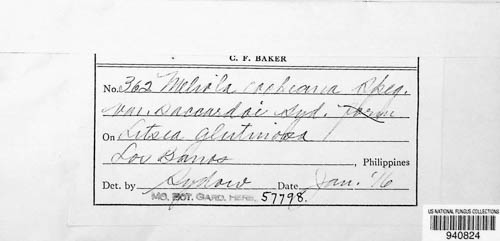 C. F. BAKER
No. 362 Meliola cookeana Speg.
var. Saccardoi Syd. form
On Litsea glutinosa
Los Banos, Philippines
Det. by Sydow Date Jan. '16
MO. BOT. GARD. HERB. 57798.
US NATIONAL FUNGUS COLLECTIONS
940824